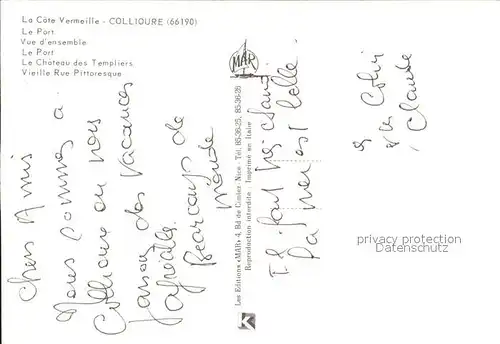 La Côte Vermeille - COLLIOURE (66190)
Le Port
Vue d'ensemble
Le Port
Le Château des Templiers
Vieille Rue Pittoresque
MAR
Les Editions «MAR» 4, Bd de Cimiez - Nice - Tél. 85-36-25, 85-36-26
Reproduction interdite - Imprimé en Italie
K
Chers Amis
Nous sommes a
Collioure ou nous
passons des vacances
agréables.
Beaucoup de
monde
Il fait très chaud
La mer est belle.
et
Claude
privacy protection
Datenschutz